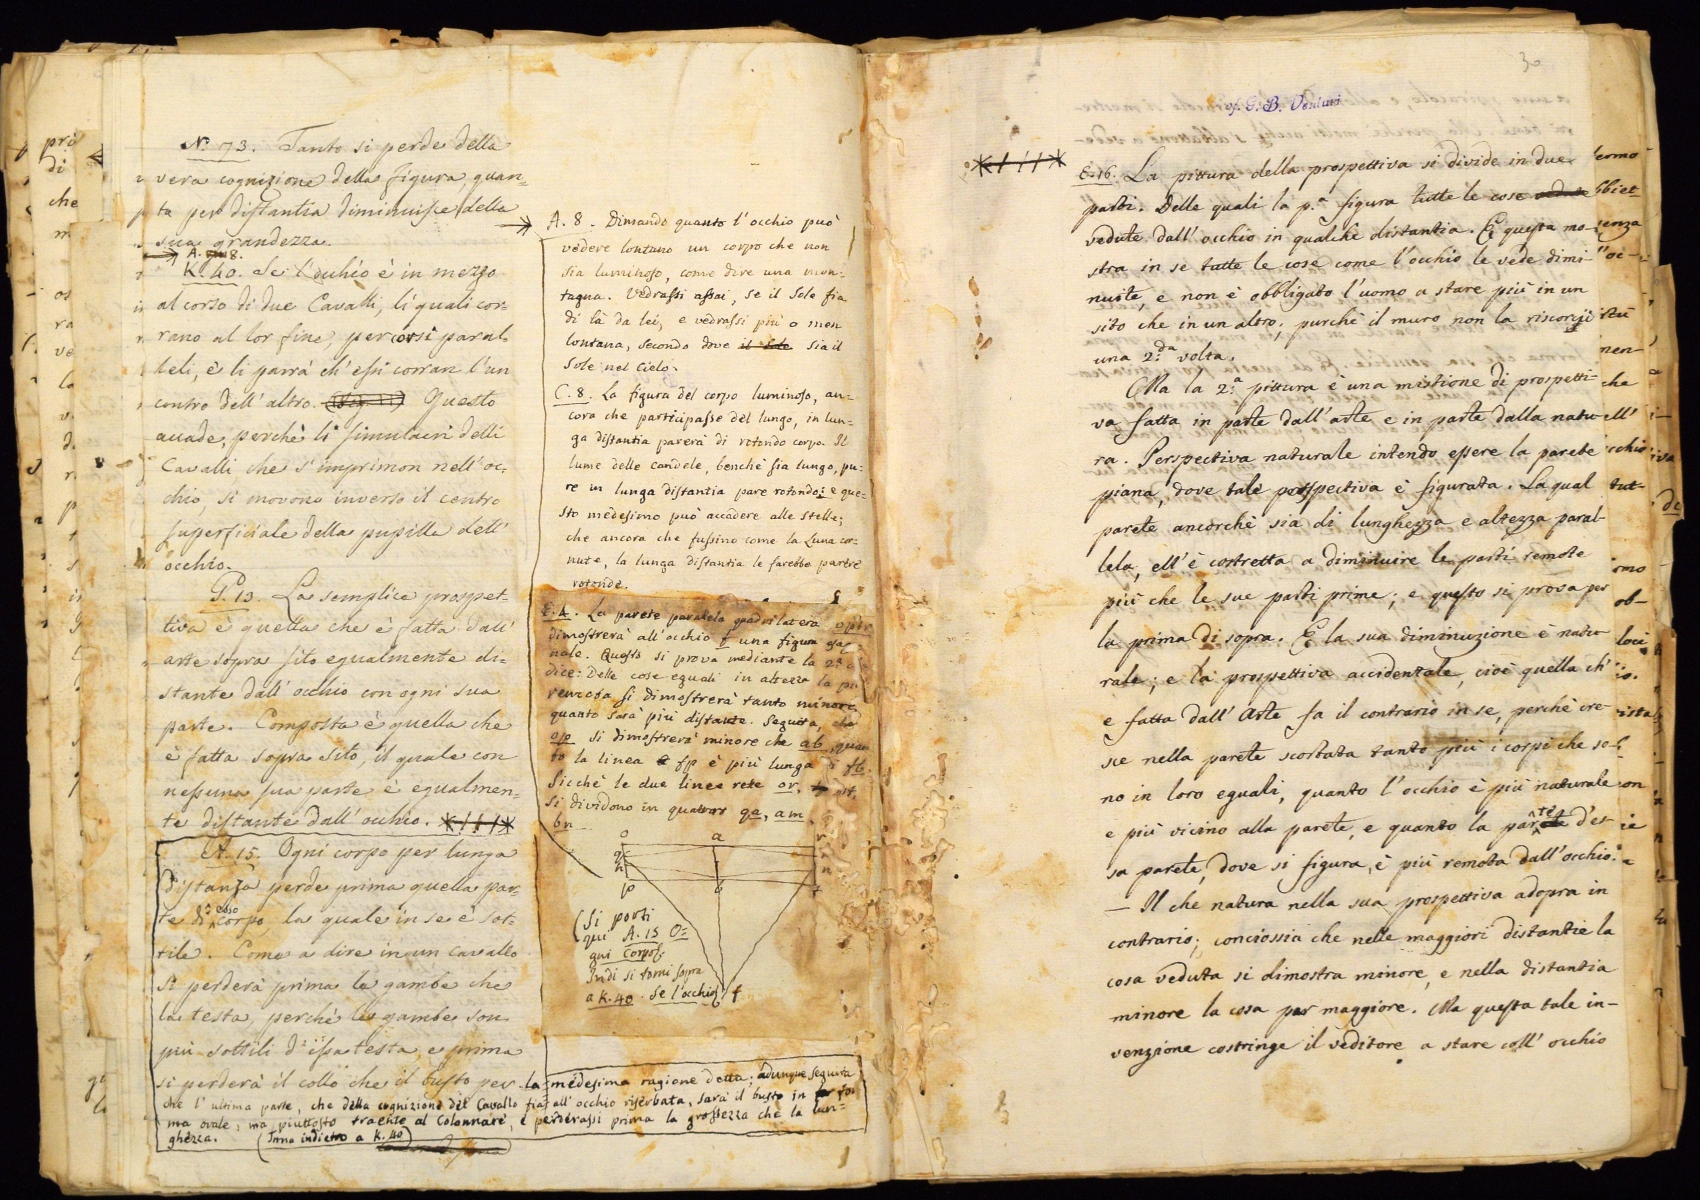 N.º 73. Tanto si perde della
vera cognizione della figura, quan-
to per distantia diminuisce della
sua grandezza.
A. 8.
K. 40. Se l'occhio è in mezzo
al corso di due Cavalli, li quali cor-
rano al lor fine, per corsi paral-
leli, è li parrà ch'essi corran l'un
contro dell'altro. Questo
accade, perchè li simulacri delli
Cavalli che s'imprimon nell'oc-
chio, si movono inverso il centro
superficiale della pupilla dell'
occhio.
G. 13. La semplice prospet-
tiva è quella che è fatta dall'
arte sopra sito egualmente di-
stante dall'occhio con ogni sua
parte. Composta è quella che
è fatta sopra sito, il quale con
nessuna sua parte è egualmen-
te distante dall'occhio.
A. 15. Ogni corpo per lunga
distanza perde prima quella par-
te di esso corpo, la quale in se è sot-
tile. Come a dire in un Cavallo
si perderà prima le gambe che
la testa, perchè le gambe son
più sottili d'essa testa, e prima
si perderà il collo che il busto per la medesima ragione detta; adunque seguita
che l'ultima parte, che della cognizione del Cavallo fia all'occhio riserbata, sarà il busto in for-
ma ovale, ma piuttosto traente al Colonnare, e perderassi prima la grossezza che la lun-
ghezza. (Torna indietro a K. 40)
A. 8. Dimando quanto l'occhio può
vedere lontano un corpo che non
sia luminoso, come dire una mon-
tagna. Vedrassi assai, se il Sole fia
di là da lei, e vedrassi più o men
lontana, secondo dove il Sole sia il
Sole nel Cielo.
C. 8. La figura del corpo luminoso, an-
cora che participasse del lungo, in lun-
ga distantia parerà di rotondo corpo. Il
lume delle candele, benchè sia lungo, pu-
re in lunga distantia pare rotondo; e que-
sto medesimo può accadere alle stelle;
che ancora che fussino come la Luna cor-
nute, la lunga distantia le farebbe parere
rotonde.
E. 4. La parete paralela quadrilatera opir
dimostrerà all'occhio f una figura
nale. Questo si prova mediante la 2ª
dice: Delle cose eguali in altezza la più
remota si dimostrerà tanto minore,
quanto sarà più distante. Seguita, che
op si dimostrerà minore che ab, quan
to la linea fp è più lunga di fb.
Sicchè le due linee rete or,
si dividono in quattro qe, am,
bn
o a r
q
n n
p b
(Si porti
qui A. 15 O=
gni Corpo.
Indi si torni sopra
a K. 40. Se l'occhio) f
30
of. G. B. Venturi
E. 16. La pittura della prospettiva si divide in due
parti. Delle quali la p.ª figura tutte le cose vedute
vedute dall'occhio in qualche distantia. E questa mo-
stra in se tutte le cose come l'occhio le vede dimi-
nuite, e non è obbligato l'uomo a stare più in un
sito che in un altro, purchè il muro non la riscorij
una 2.da volta.
Ma la 2.ª pittura è una mistione di prospetti-
va fatta in parte dall'arte e in parte dalla natu-
ra. Perspectiva naturale intendo essere la parete
piana, dove tale prospectiva è figurata. La qual
parete ancorchè sia di lunghezza e altezza paral-
lela, ell'è costretta a diminuire le parti remote
più che le sue parti prime; e questo si prova per
la prima di sopra. E la sua diminuzione è natu-
rale; e la prospettiva accidentale, cioè quella ch'
è fatta dall'Arte fa il contrario in se, perchè cre-
sce nella parete scortata tanto più i corpi che so-
no in loro eguali, quanto l'occhio è più naturale
e più vicino alla parete, e quanto la parte d'es-
sa parete, dove si figura, è più remota dall'occhio.
— Il che natura nella sua prospettiva adopra in
contrario; conciossia che nelle maggiori distantie la
cosa veduta si dimostra minore, e nella distantia
minore la cosa par maggiore. Ma questa tale in-
venzione costringe il veditore a stare coll'occhio